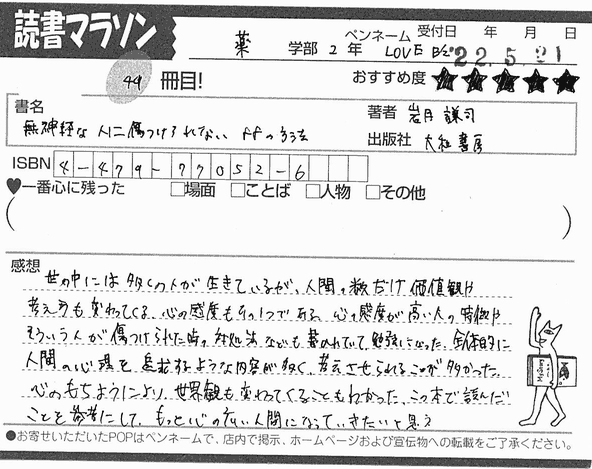 読書マラソン
薬 学部 2 年
ペンネーム LOVE B'z
受付日 年 月 日
22.5.21
49 冊目!
おすすめ度 ★★★★★
書名
無神経な人に傷つけられない の方法
著者 岩月謙司
出版社 大和書房
ISBN 4-479-77052-6
♥一番心に残った □場面 □ことば □人物 □その他
感想
世の中には多くの人が生きているが、人間の数だけ価値観や
考え方も変わってくる。心の感度もその1つである。心の感度が高い人の特徴や
そういう人が傷つけられた時の対処法なども書かれていて、勉強になった。全体的に
人間の心理を追求するような内容が多く、考えさせられることが多かった。
心のもちようにより、世界観も変わってくることもわかった。この本で読んだ
ことを参考にして、もっと心の広い人間になっていきたいと思う
●お寄せいただいたPOPはペンネームで、店内で掲示、ホームページおよび宣伝物への転載をご了承ください。